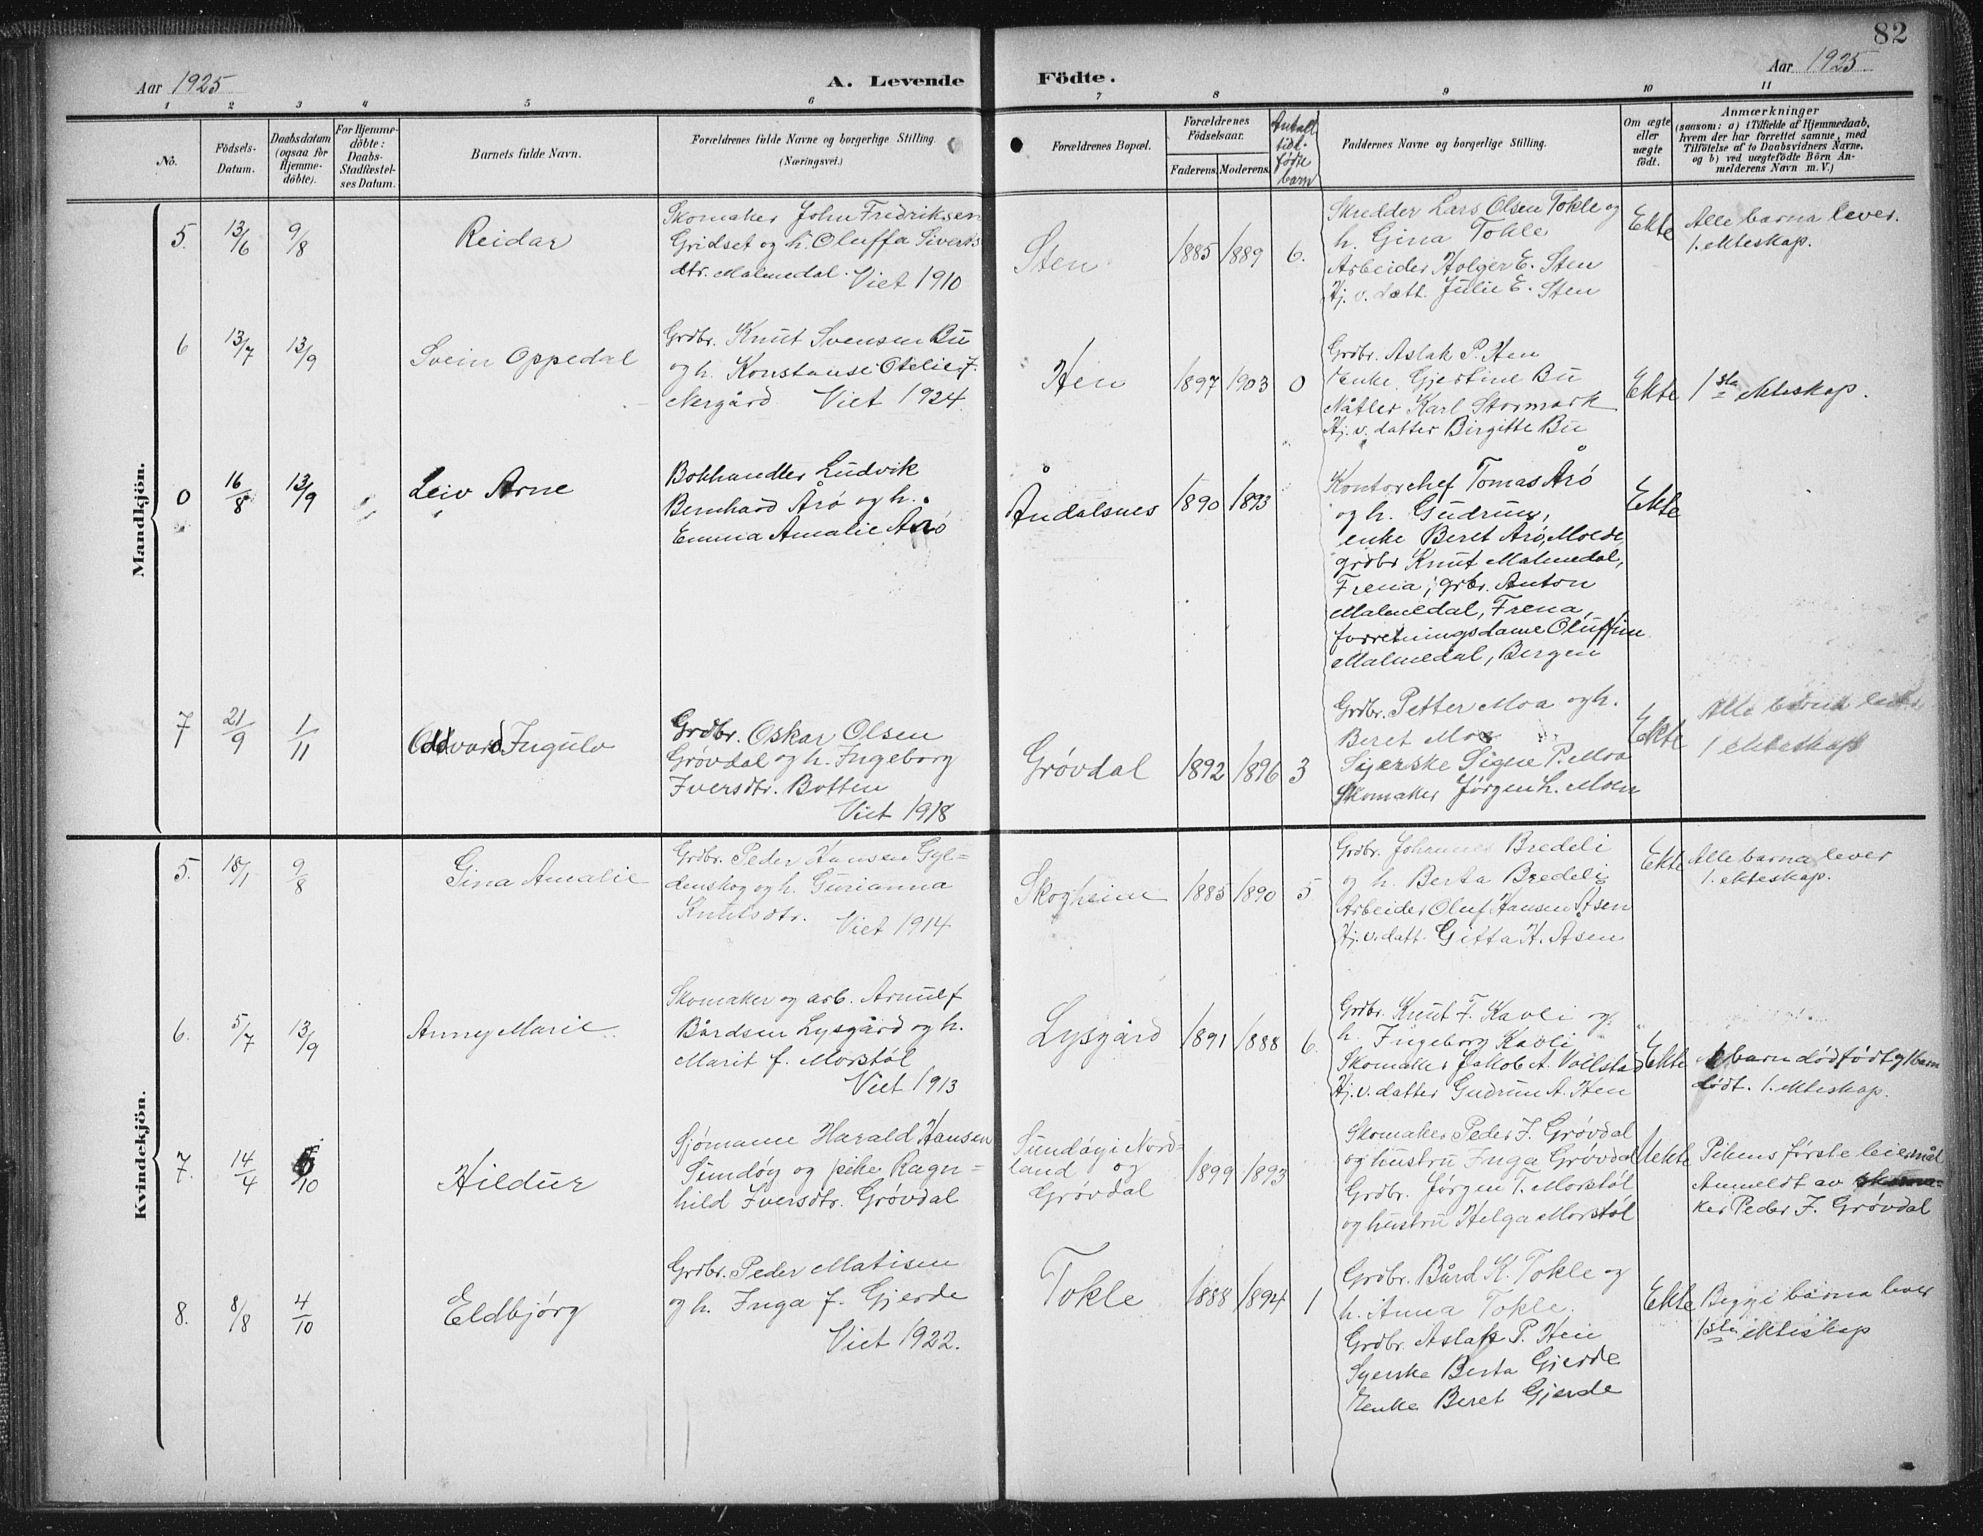 82
Aar 1925
A. Levende
Födte.
Aar 1925
1 2 3 4 5 6 7 8 9 10 11
No.
Födsels-
Datum.
Daabsdatum
(ogsaa for
Hjemme-
döbte).
For Hjemme-
döbte:
Daabs-
Stadfæstel-
ses Datum.
Barnets fulde Navn.
Forældrenes fulde Navne og borgerlige Stilling.
(Næringsvei.)
Forældrenes Bopæl.
Forældrenes
Födselsaar.
Faderens. Moderens.
Antall
tidl.
fødte
barn
Faddernes Navne og borgerlige Stilling.
Om ægte
eller
uægte
födt.
Anmærkninger
(saasom: a) i Tilfælde af Hjemmedaab,
hvem der har forrettet samme, med
Tilföielse af to Daabsvidners Navne,
og b) ved uægtefödte Börn An-
melderens Navn m. V.)
Mandkjön.
5. 13/6 9/8
Reidar
Skomaker John Fredriksen
Gridset og h. Oluffa Siverts
dtr. Malmedal. Viet 1910
Sten
1885 1889 6.
Skredder Lars Olsen Tokle og
h. Gina Tokle
Arbeider Holger E. Sten
Hj. v. datt. Julie E. Sten
Ekte
Alle barna lever.
1. ekteskap.
6 13/7 13/9
Svein Oppedal
Grdbr. Knut Svensen Bu
og h. Konstanse Otelie f.
Nergård Viet 1924
Hen
1897 1903 0
Grdbr. Aslak P. Hen
Enke Gjertine Bu
Nåtler Karl Stormark
Hj. v. datter Birgitte Bu
Ekte
1ste ekteskap.
0 16/8 13/9
Leiv Arne
Bokhandler Ludvik
Bernhard Årø og h.
Emma Amalie Årø
Åndalsnes
1890 1893
Kontorchef Tomas Årø
og h. Gudrun,
enke Beret Årø, Molde,
grdbr Knut Malmedal,
Frena, grbr. Anton
Malmedal, Frena,
forretningsdame Oluffine
Malmedal, Bergen
Ekte
7 21/9 1/11
Oddvard Ingulv
Grdbr. Oskar Olsen
Grøvdal og h. Ingeborg
Iversdtr. Botten
Viet 1918
Grøvdal
1892 1896 3
Grdbr. Petter Moa og h.
Beret Moa
Syerske Signe P. Moa
Skomaker Jørgen L. Moen
Ekte
Alle barna lever
1 ekteskap
Kvindekjön.
5. 18/1 9/8
Gina Amalie
Grdbr. Peder Hansen Gyl-
denskog og h. Gurianna
Knutsdtr. Viet 1914
Skogheim
1885 1890 5
Grdbr. Johannes Bredeli
og h. Berta Bredeli
Arbeider Oluf Hansen Åsen
Hj. v. datt. Gitta H. Åsen
Ekte
Alle barna lever
1. ekteskap.
6. 5/7 13/9
Anny Marie
Skomaker og arb. Arnulf
Bårdsen Lysgård og h.
Marit f. Morstøl
Viet 1913
Lysgård
1891 1888 6.
Grdbr. Knut F. Kavli og
h. Ingeborg Kavli
Skomaker Jakob A. Vollstad
Hj. v. datter Gudrun A. Hen
Ekte
1 barn dødfødt og 1 barn
dødt. 1. ekteskap.
7. 14/4 /10
Hildur
Sjømann Harald Hansen
Sundøy og pike Ragn-
hild Iversdtr. Grøvdal
Sundøy i Nord-
land og
Grøvdal
1899 1893
Skomaker Peder I. Grøvdal
og hustru Inga Grøvdal
Grdbr. Jørgen I. Morstøl
og hustru Helga Morstøl
Uekte
Pikens første leiermål
Anmeldt av skoma-
ker Peder I. Grøvdal
8. 8/8 4/10
Eldbjørg
Grdbr. Peder Matisen
og h. Inga f. Gjerde
Viet 1922.
Tokle
1888 1894 1
Grdbr. Bård K. Tokle og
h. Anna Tokle.
Grdbr. Aslak P. Hen
Syerske Berta Gjerde
Enke Beret Gjerde
Ekte
Begge barna lever
1ste ekteskap